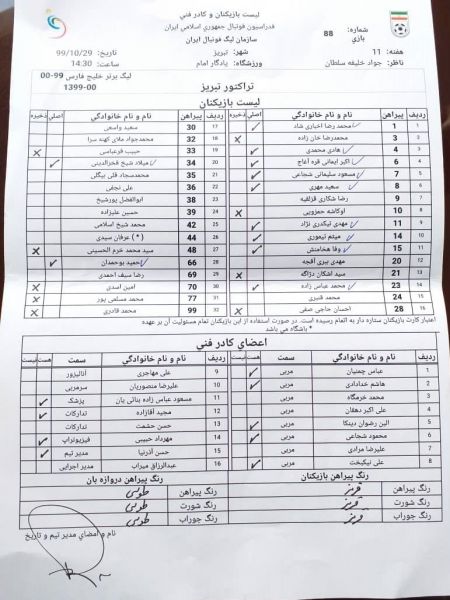 لیست بازیکنان و کادر فني
فدراسیون فوتبال جمهوري اسلامي ایران
سازمان لیگ فوتبال ایران
شماره بازي: 88
هفته: 11
شهر: تبریز
تاریخ: 99/10/29
ناظر: جواد خلیفه سلطان
ورزشگاه: یادگار امام
ساعت: 14:30
لیگ برتر خلیج فارس 99-00
1399-00
تراکتور تبریز
لیست بازیکنان
ردیف پیراهن نام و نام خانوادگي اصلي ذخیره ردیف پیراهن نام و نام خانوادگي اصلي ذخیره
1 1 محمد رضا اخباری شاد ✓ 17 30 سعید واسعی
2 3 محمدرضا خان زاده × 18 32 محمدجواد ملای کهنه سرا
3 4 هادی محمدی ✓ 19 33 حبیب فرعباسی ×
4 6 اکبر ایمانی قره آغاج ✓ 20 34 میلاد شیخ فخرالدینی ✓
5 7 مسعود سلیمانی شجاعی ✓ 21 35 محمدسجاد قلی بیگلی
6 8 سعید مهری ✓ 22 36 علی نجفی
7 9 رضا شکاری قزلقیه 23 38 ابوالفضل پورشیخ
8 10 اوکاشه حمزویی × 24 39 حسین علیزاده
9 11 مهدی تیکدری نژاد ✓ 25 42 محمد شیخ اسلامی
10 14 میثم تیموری ✓ 26 44 (*) عرفان سیدی
11 15 وفا هخامنش ✓ 27 48 سید محمد خرم الحسینی ×
12 20 مهدی ببری آقجه 28 66 حمید بوحمدان ✓
13 21 سید اشکان دژاگه × 29 69 رضا سیف احمدی
14 23 محمد عباس زاده ✓ 30 70 امین اسدی ×
15 24 محمد قنبری 31 77 محمد مسلمی پور ×
16 28 احسان حاجی صفی × 32 99 محمد قادری ×
اعتبار کارت بازیکنان ستاره دار به اتمام رسیده است. در صورت استفاده از این بازیکنان تمام مسئولیت آن بر عهده باشگاه می باشد *
اعضاي کادر فني
ردیف نام و نام خانوادگي سمت هست نیست ردیف نام و نام خانوادگي سمت هست نیست
1 عباس چمنیان مربی ✓ 9 علی مهاجری آنالیزور
2 هاشم خدادادی مربی ✓ 10 علیرضا منصوریان سرمربی
3 محمد خرمگاه مربی 11 مسعود عباس زاده بنائی بان پزشک ✓
4 علی اکبر دهقان مربی 12 مجید آقازاده تدارکات ✓
5 الین رضوان دینکا مربی ✓ 13 حسن حشمت تدارکات
6 محمود شجاعی مربی ✓ 14 مهرداد حبیبی فیزیوتراپ ✓
7 علیرضا مرادی مربی 15 حسن آذرنیا مدیر تیم ✓
8 علی نیکبخت مربی ✓ 16 عبدالرزاق میراب مدیر اجرایی
رنگ پیراهن بازیکنان رنگ پیراهن دروازه بان
رنگ پیراهن قرمز رنگ پیراهن طوسی
رنگ شورت قرمز رنگ شورت طوسی
رنگ جوراب قرمز رنگ جوراب طوسی
نام و امضاي مدیر تیم و تاریخ